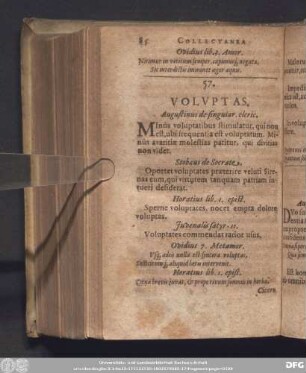 85 COLLECTANEA
Ovidius lib. 3. Amor.
Nitimur in vetitum semper, cupimusq; negata,
Sic interdictis imminet æger aquis.
57.
VOLVPTAS,
Augustinus de singular. cleric.
Minus voluptatibus stimulatur, qui non
est, ubi frequentia est voluptatum. Mi-
nus avaritiæ molestias patitur, qui divitias
non videt.
Stobæus de Socrate.
Oportet voluptates præterire veluti Sire-
nas eum, qui virtutem tanquam patriam in-
tueri desiderat.
Horatius lib. 1. epist.
Sperne voluptates, nocet empta dolore
voluptas.
Juvenalis satyr. 11.
Voluptates commendat rarior usus.
Ovidius 7. Metamor.
Usq; adeò nulla est sincera voluptas,
Sollicitumq; aliquid lætis intervenit.
Horatius lib. 1. epist.
Cœna brevis juvat, & prope rivum somnus in herba.
Cicero
DFG